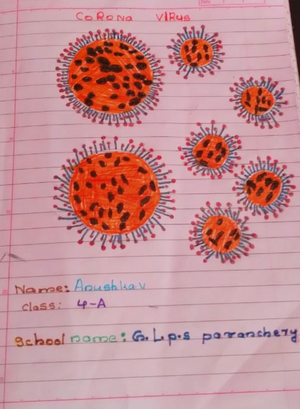 CoRona VIRus
Name: Anushka v
Class: 4-A
School name: G.L.p.s paranchery